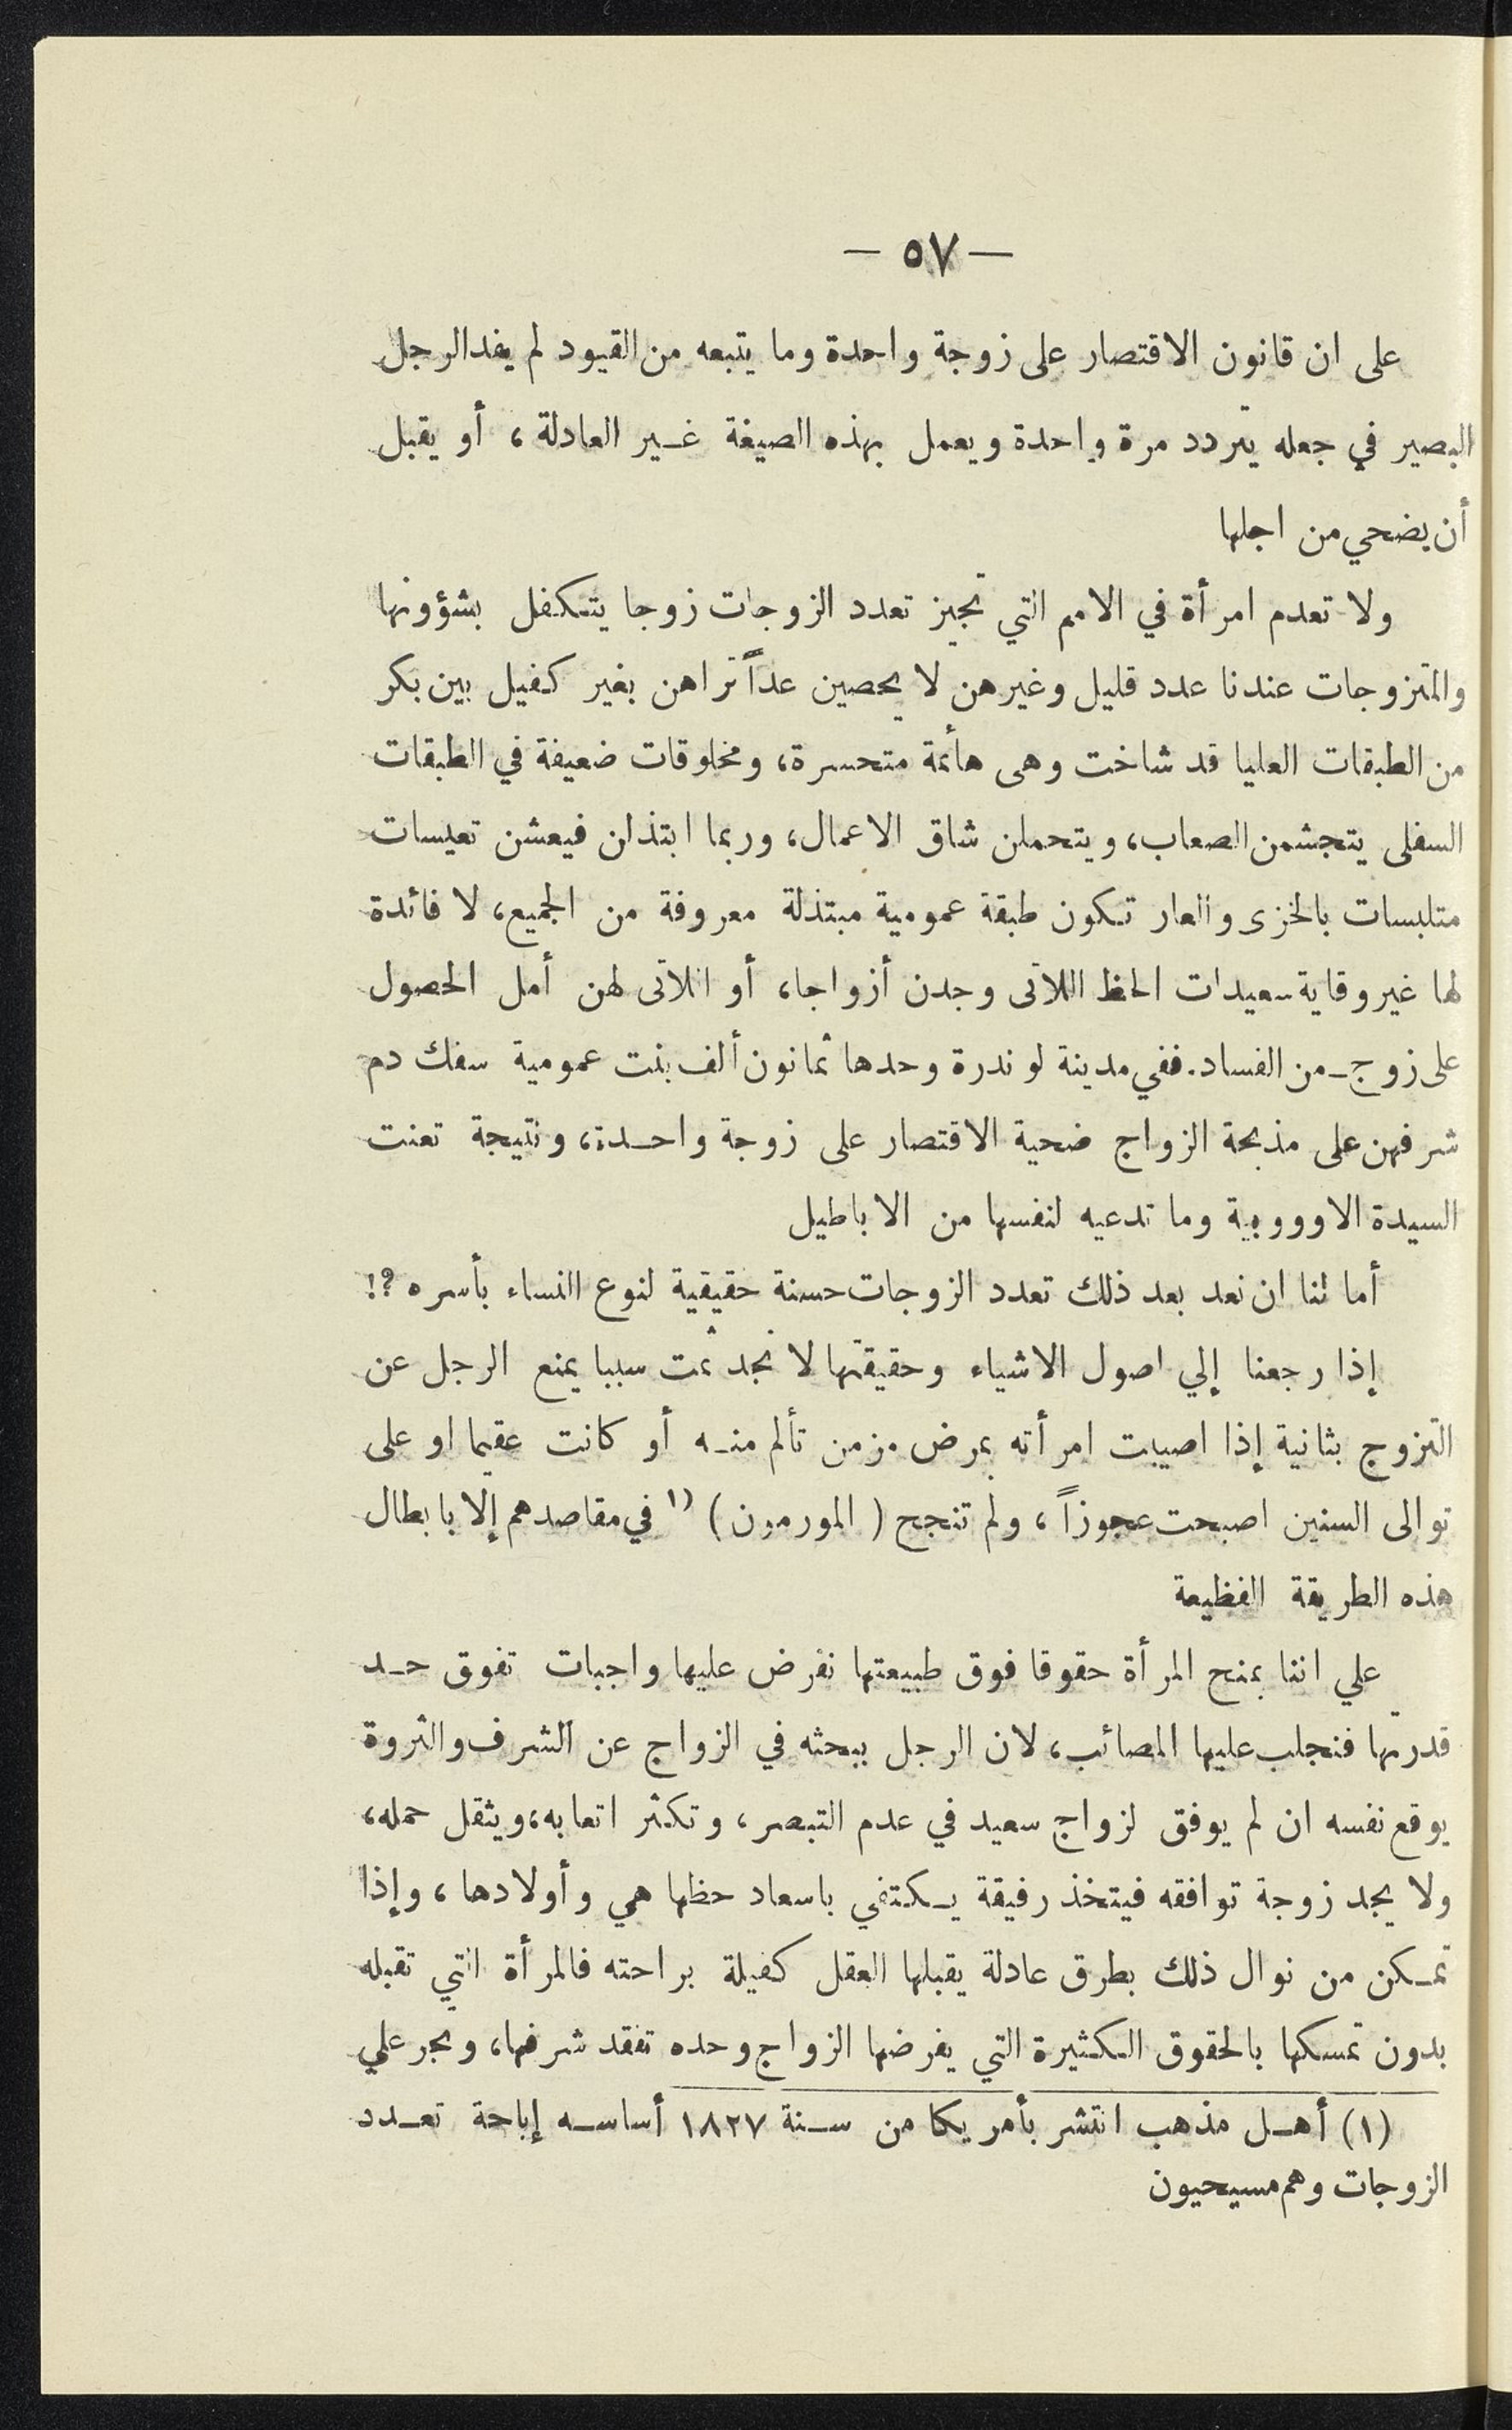 — ٥٧ —
على ان قانون الاقتصار على زوجة واحدة وما يتبعه من القيود لم يفد الرجل
البصير في جعله يتردد مرة واحدة ويعمل بهذه الصيغة غير العادلة، أو يقبل
أن يضحي من اجلها
ولا تعدم امرأة في الامم التي تجيز تعدد الزوجات زوجا يتكفل بشؤونها
والمتزوجات عندنا عدد قليل وغيرهن لا يحصين عداً تراهن بغير كفيل بين بكر
من الطبقات العليا قد شاخت وهى هأئمة متحسرة، ومخلوقات ضعيفة في الطبقات
السفلى يتجشمن الصعاب، ويتحملن شاق الاعمال، وربما ابتذلن فيعشن تعيسات
متلبسات بالخزى والعار تكون طبقة عمومية مبتذلة معروفة من الجميع، لا فائدة
لها غير وقاية سعيدات الحظ اللاتى وجدن أزواجا، أو اللاتى لهن أمل الحصول
على زوج من الفساد. ففي مدينة لوندرة وحدها ثمانون ألف بنت عمومية سفك دم
شرفهن على مذبحة الزواج ضحية الاقتصار على زوجة واحدة، ونتيجة تعنت
السيدة الاوووبية وما تدعيه لنفسها من الاباطيل
أما لنا ان نعد بعد ذلك تعدد الزوجات حسنة حقيقية لنوع النساء بأسره ؟!
إذا رجعنا إلي اصول الاشياء وحقيقتها لا نجد ثمت سببا يمنع الرجل عن
التزوج بثانية إذا اصيبت امرأته بمرض مزمن تألم منه أو كانت عقيما او على
توالى السنين اصبحت عجوزاً، ولم تنجح (المورمون) ١) في مقاصدهم إلا بابطال
هذه الطريقة الفظيعة
علي اننا بمنح المرأة حقوقا فوق طبيعتها نفرض عليها واجبات تفوق حد
قدرتها فنجلب عليها المصائب، لان الرجل ببحثه في الزواج عن الشرف والثروة
يوقع نفسه ان لم يوفق لزواج سعيد في عدم التبصر، وتكثر اتعابه، ويثقل حمله،
ولا يجد زوجة توافقه فيتخذ رفيقة يكتفي باسعاد حظها هي وأولادها، وإذا
تمكن من نوال ذلك بطرق عادلة يقبلها العقل كفيلة براحته فالمرأة التي تقبله
بدون تمسكها بالحقوق الكثيرة التي يفرضها الزواج وحده تفقد شرفها، وتجر علي
(١) أهل مذهب انتشر بأمريكا من سنة ١٨٢٧ أساسه إباحة تعدد
الزوجات وهم مسيحيون